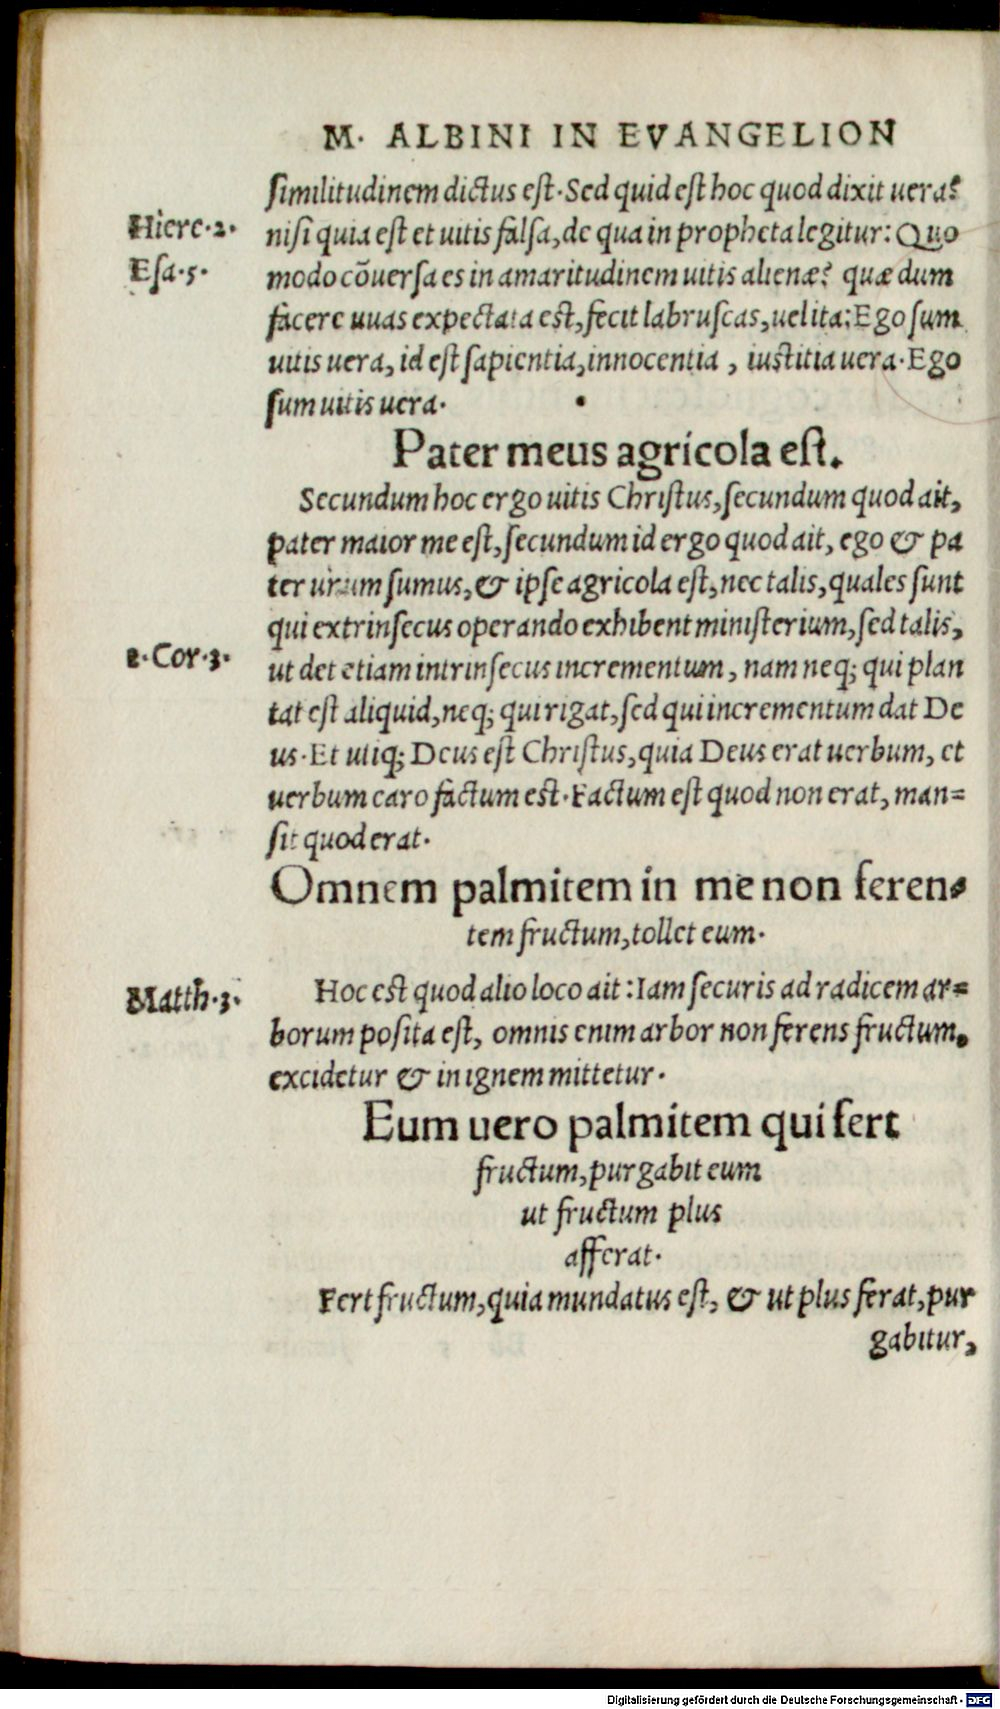 M. ALBINI IN EVANGELION
similitudinem dictus est. Sed quid est hoc quod dixit uera?
Hiere.2.
nisi quia est et uitis falsa, de qua in propheta legitur: Quo
Esa.5.
modo cõuersa es in amaritudinem uitis alienæ? quæ dum
facere uuas expectata est, fecit labruscas, uel ita: Ego sum
uitis uera, id est sapientia, innocentia, iustitia uera. Ego
sum uitis uera.
Pater meus agricola est.
Secundum hoc ergo uitis Christus, secundum quod ait,
pater maior me est, secundum id ergo quod ait, ego & pa
ter unum sumus, & ipse agricola est, nec talis, quales sunt
qui extrinsecus operando exhibent ministerium, sed talis,
Cor.3.
ut det etiam intrinsecus incrementum, nam neq; qui plan
tat est aliquid, neq; qui rigat, sed qui incrementum dat De
us. Et utiq; Deus est Christus, quia Deus erat uerbum, et
uerbum caro factum est. Factum est quod non erat, man=
sit quod erat.
Omnem palmitem in me non feren-
tem fructum, tollet eum.
Matth.3.
Hoc est quod alio loco ait: Iam securis ad radicem ar=
borum posita est, omnis enim arbor non ferens fructum.
excidetur & in ignem mittetur.
Eum uero palmitem qui fert
fructum, purgabit eum
ut fructum plus
afferat.
Fert fructum, quia mundatus est, & ut plus ferat, pur
gabitur,
Digitalisierung gefördert durch die Deutsche Forschungsgemeinschaft - DFG